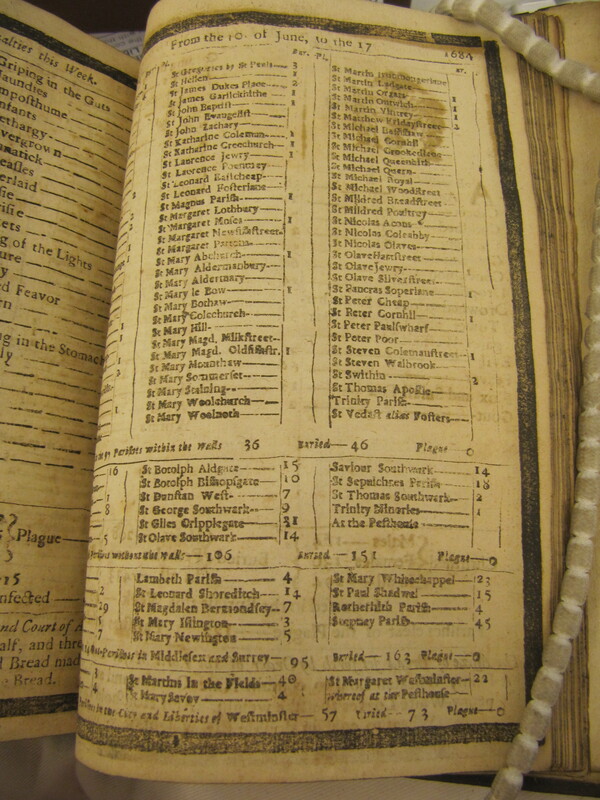 alties this Week.
Griping in the Guts
Jaundies
Imposthume
Infants
Lethargy
Overgrown
Lunatick
Measles
Overlaid
sie
risie
ets
g of the Lights
ure
y
ed Feavor
rn
ing in the Stomach
ly
Plague
15
nfected
and Court of A
alf, and thre
d Bread made
e Bread.
From the 10 of June, to the 17 1684
Bur. Pl.
St Gregories by St Pauls 3
St Hellen 1
St James Dukes Place 2
St James Garlickhithe 1
St John Baptist 1
St John Evangelist
St John Zachary
St Katharine Coleman 1
St Katharine Creechurch 1
St Laurence Jewry 1
St Laurence Pountney
St Leonard Eastcheap
St Leonard Fosterlane
St Magnus Parish 1
St Margaret Lothbury
St Margaret Moses 1
St Margaret Newfishstreet
St Margaret Pattons
St Mary Abchurch 1
St Mary Aldermanbury
St Mary Aldermary
St Mary le Bow 1
St Mary Bothaw
St Mary Colechurch
St Mary Hill
St Mary Magd. Milkstreet
St Mary Magd. Oldfishstr. 1
St Mary Mounthaw
St Mary Sommerset
St Mary Staining
St Mary Woolchurch
St Mary Woolnoth
St Martin Ludgate
St Martin Orgars
St Martin Outwich 1
St Martin Vintrey 1
St Matthew Fridaystreet
St Michael Bassishaw
St Michael Cornhil
St Michael Crookedlane
St Michael Queenhith
St Michael Quern
St Michael Royal
St Michael Woodstreet
St Mildred Breadstreet
St Mildred Poultrey
St Nicolas Acons
St Nicolas Coleabby
St Nicolas Olaves
St Olave Hartstreet
St Olave Jewry
St Olave Silverstreet
St Pancras Soperlane 1
St Peter Cheap
St Peter Cornhil 1
St Peter Paulswharf
St Peter Poor
St Steven Colemanstreet 1
St Steven Walbrook
St Swithin 2
St Thomas Apostle
Trinity Parish
St Vedast alias Fosters
Parishes within the Walls 36 Buried 46 Plague 0
16
8
5
St Botolph Aldgate 15
St Botolph Bishopsgate 10
St Dunstan West 7
St George Southwark 9
St Giles Cripplegate 31
St Olave Southwark 14
Saviour Southwark 14
St Sepulchres Parish 18
St Thomas Southwark 2
Trinity Minories 1
At the Pesthouse
Parishes without the Walls 106 Buried 151 Plague 0
2
29
6
7
Lambeth Parish 4
St Leonard Shoreditch 14
St Magdalen Bermondsey 7
St Mary Islington 3
St Mary Newington 5
St Mary Whitechappel 23
St Paul Shadwel 15
Rotherhith Parish 4
Stepney Parish 45
Parishes in Middlesex and Surrey 95 Buried 163 Plague 0
St Martins in the Fields 40
St Mary Savoy 4
St Margaret Westminster 22
whereof at the Pesthouse
Parishes in the City and Liberties of Westminster 57 Buried 73 Plague 0